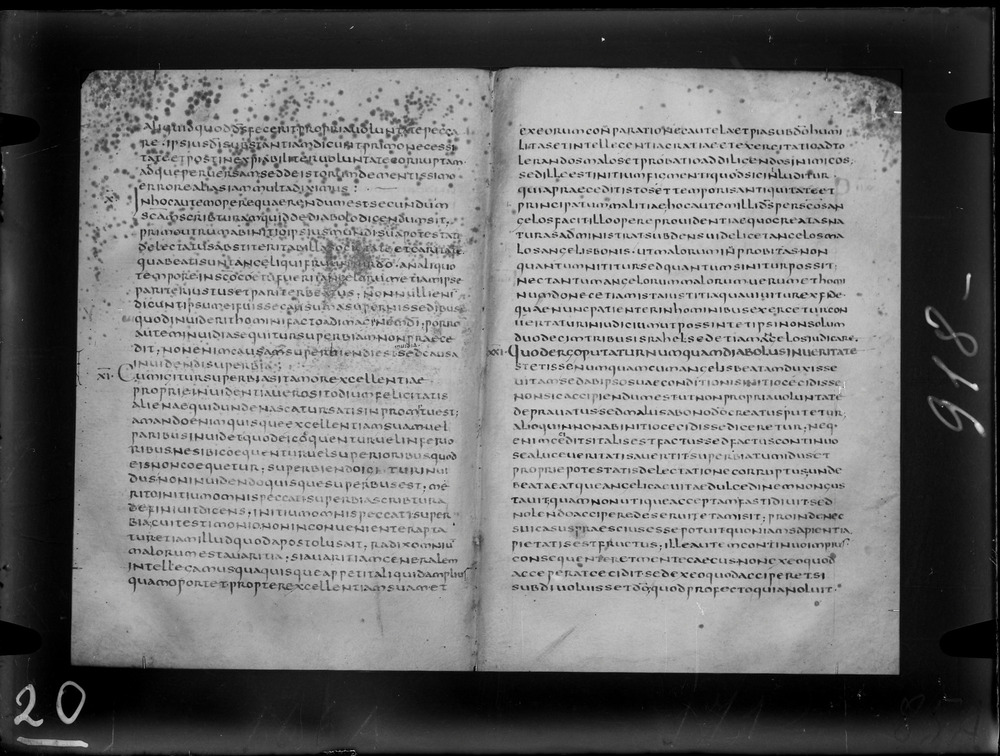 aliquid quod ds fecerit propria uoluntate pecca
re · ipsius di substantiam dicunt primo necessi
tate et post inexpiabiliter uoluntate corruptam
adque peruersam sed de istorum dementissimo
errore alias iam multa diximus :
In hoc autem opere quaerendum est secundum
scam scribturam quid de diabolo dicendum sit ·
primo utrum ab initio ipsius mundi sua potestate
delectatus abstiterit ab illa societate et caritate
qua beati sunt angeli qui fruuntur do · an aliquo
tempore in sco coetu fuerit angelorum etiam ipse
pariter iustus et pariter beatus ; nonnulli enim
dicunt ipsum ei fuisse casum a supernis sedibus
quod inuiderit homini facto ad imaginem di ; porro
autem inuidia sequitur superbiam non praece
dit ; non enim causam superbiendi est inuidia sed causa
inuidendi superbia ;
xi · Cum igitur superbia sit amor excellentiae
propriae inuidentia uero sit odium felicitatis
alienae quid unde nascatur satis in promtu est ;
amando enim quisque excellentiam suam uel
paribus inuidet quod ei coequentur uel inferio
ribus ne sibi coequentur uel superioribus quod
eis non coequetur ; superbiendo igitur inui
dus non inuidendo quisque superbus est ; me
rito initium omnis peccati superbia scribtura
definiuit dicens · initium omnis peccati super
bia ; cui testimonio non inconuenienter apta
tur etiam illud quod apostolus ait · radix omniu
malorum est auaritia ; si auaritiam generalem
intellegamus qua quisque appetit aliquid amplius
quam oportet propter excellentiam suam et
ex eorum conparatione cautela et pia sub do humi
litas et intellegentia gratiae et exercitatio ad to
lerandos malos et probatio ad diligendos inimicos ;
sed ille est initium figmenti quod sic inluditur
quia praecedit istos et temporis antiquitate et
principatum malitiae ; hoc autem illi ds per scos an
gelos facit illo opere prouidentiae quo creatas na
turas administrat subdens uidelicet angelos ma
los angelis bonis · ut malorum inprobitas non
quantum nititur sed quantum sinitur possit ;
nec tantum angelorum malorum uerum et homi
num donec etiam ista iustitia qua uiuitur ex fide
quae nunc patienter in hominibus exercetur con
uertatur in iudicium ut possint et ipsi non solum
duodecim tribus israhel sed etiam angelos iudicare ·
xxi · Quod ergo putatur numquam diabolus in ueritate
stetisse numquam cum angelis beatam duxisse
uitam sed ab ipso suae conditionis initio cecidisse
non sic accipiendum est ut non propria uoluntate
deprauatus sed malus a bono do creatus putetur ;
alioquin non ab initio cecidisse diceretur ; neq·
enim cecidit si talis est factus sed factus continuo
se a luce ueritatis auertit superbia tumidus et
propriae potestatis delectatione corruptus ; unde
beatae atque angelicae uitae dulcedinem non gus
tauit ; quam non utique acceptam fastidiuit sed
nolendo accipere deseruit et amisit ; proinde nec
sui casus praescius esse potuit quoniam sapientia
pietatis est fructus ; ille autem continuo impius
consequenter et mente caecus non ex eo quod
acceperat cecidit sed ex eo quod acciperet si
subdi uoluisset do quod profecto quia noluit ·
918-
20